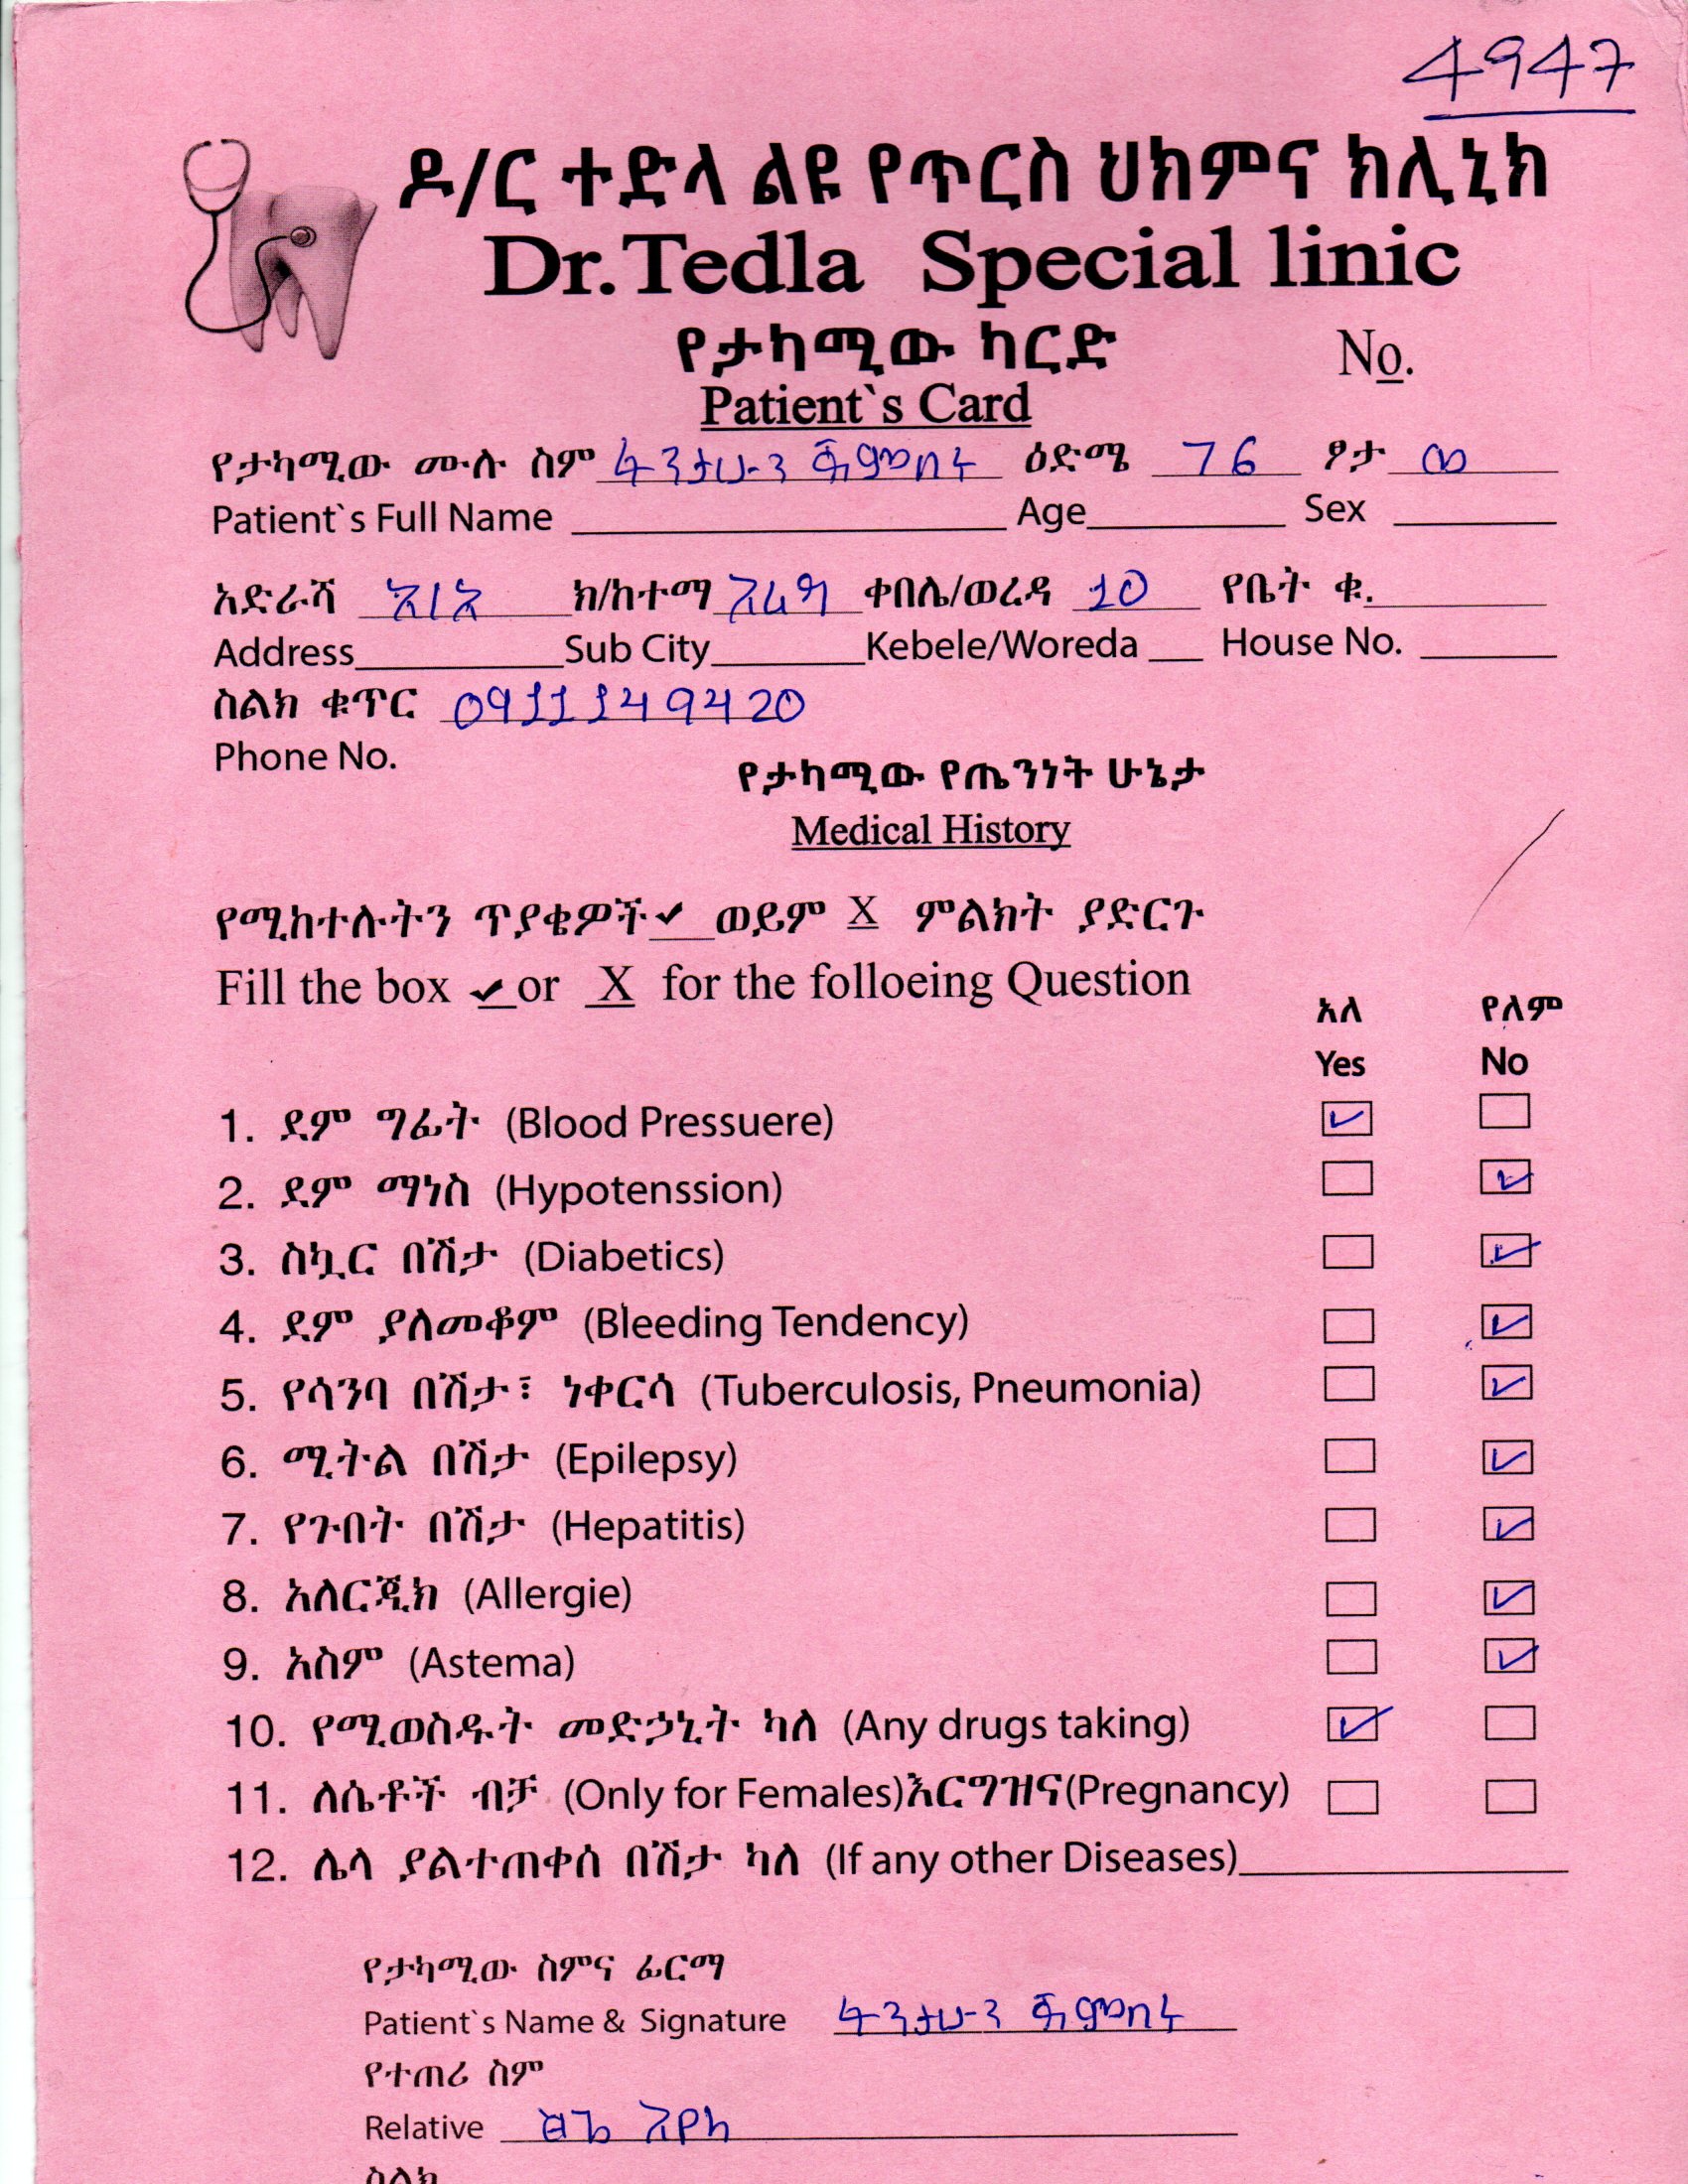 4947
ዶ/ር ተድላ ልዩ የጥርስ ህክምና ክሊኒክ
Dr.Tedla Special linic
የታካሚው ካርድ No.
Patient`s Card
የታካሚው ሙሉ ስም ዕድሜ 76 ፆታ ወ
Patient`s Full Name Age Sex
አድራሻ አ/አ ክ/ከተማ አራዳ ቀበሌ/ወረዳ 10 የቤት ቁ.
Address Sub City Kebele/Woreda House No.
ስልክ ቁጥር 0911149420
Phone No.
የታካሚው የጤንነት ሁኔታ
Medical History
የሚከተሉትን ጥያቄዎች ✓ ወይም X ምልክት ያድርጉ
Fill the box ✓ or X for the folloeing Question
አለ የለም
Yes No
1. ደም ግፊት (Blood Pressuere) ✓
2. ደም ማነስ (Hypotenssion) ✓
3. ስኳር በሽታ (Diabetics) ✓
4. ደም ያለመቆም (Bleeding Tendency) ✓
5. የሳንባ በሽታ፣ ነቀርሳ (Tuberculosis, Pneumonia) ✓
6. ሚትል በሽታ (Epilepsy) ✓
7. የጉበት በሽታ (Hepatitis) ✓
8. አለርጂክ (Allergie) ✓
9. አስም (Astema) ✓
10. የሚወስዱት መድኃኒት ካለ (Any drugs taking) ✓
11. ለሴቶች ብቻ (Only for Females)እርግዝና(Pregnancy)
12. ሌላ ያልተጠቀሰ በሽታ ካለ (If any other Diseases)
የታካሚው ስምና ፊርማ
Patient`s Name & Signature
የተጠሪ ስም
Relative
ስልክ